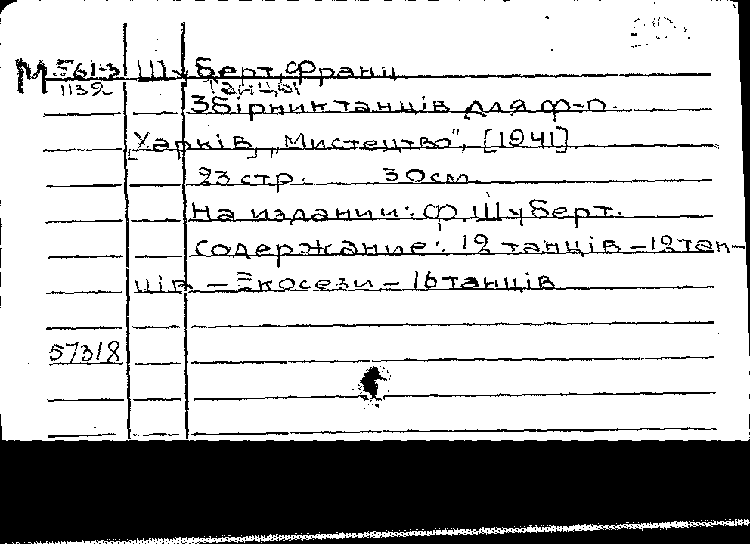 М 561-3 Шуберт, Франц
1132 Танцы
Збірник танців для ф-п.
[Харків], „Мистецтво", [1941]
23 стр. 30 см.
На издании: Ф. Шуберт.
Содержание: 12 танців – 12 тан-
ців – Екосези – 16 танців
57318